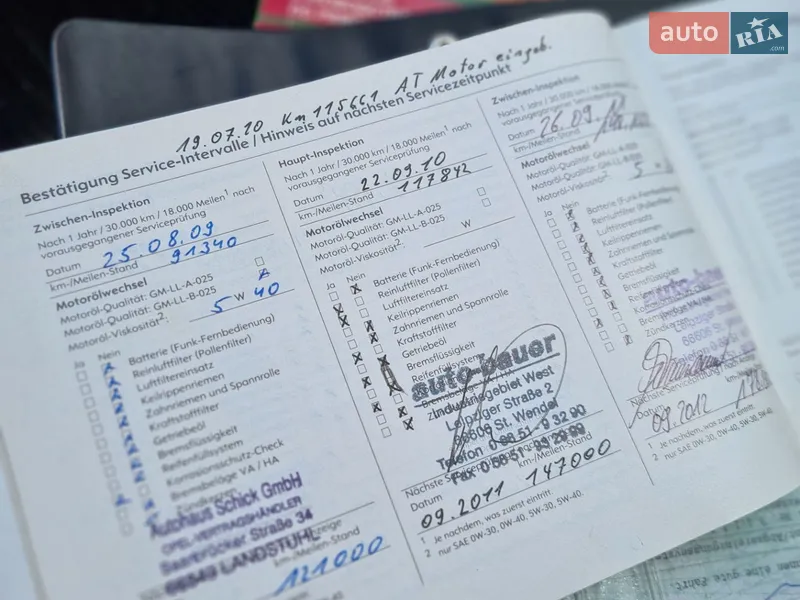 auto RIA .com
19.07.10 Km 115661 AT Motor eingeb.
Bestätigung Service-Intervalle / Hinweis auf nächsten Servicezeitpunkt
Zwischen-Inspektion
Nach 1 Jahr / 30.000 km / 18.000 Meilen1 nach
vorausgegangener Serviceprüfung
Datum 25.08.09
km-/Meilen-Stand 91340
Motorölwechsel
Motoröl-Qualität: GM-LL-A-025
Motoröl-Qualität: GM-LL-B-025
Motoröl-Viskosität2: 5 W 40
Ja Nein
Batterie (Funk-Fernbedienung)
Reinluftfilter (Pollenfilter)
Luftfiltereinsatz
Keilrippenriemen
Zahnriemen und Spannrolle
Kraftstofffilter
Getriebeöl
Bremsflüssigkeit
Reifenfüllsystem
Korrosionsschutz-Check
Bremsbeläge VA / HA
Zündkerzen
Autohaus Schick GmbH
OPEL-VERTRAGSHÄNDLER
Saarbrücker Straße 34
66849 LANDSTUHL
km-/Meilen-Stand
121000
Haupt-Inspektion
Nach 1 Jahr / 30.000 km / 18.000 Meilen1 nach
vorausgegangener Serviceprüfung
Datum 22.09.10
km-/Meilen-Stand 117842
Motorölwechsel
Motoröl-Qualität: GM-LL-A-025
Motoröl-Qualität: GM-LL-B-025
Motoröl-Viskosität2: W
Ja Nein
Batterie (Funk-Fernbedienung)
Reinluftfilter (Pollenfilter)
Luftfiltereinsatz
Keilrippenriemen
Zahnriemen und Spannrolle
Kraftstofffilter
Getriebeöl
Bremsflüssigkeit
Reifenfüllsystem
auto-bauer
Industriegebiet West
Leipziger Straße 2
66606 St. Wendel
Telefon 0 68 51 - 9 32 90
Fax 0 68 51 - 93 29 99
Nächste
km-/Meilen-Stand
Datum
09.2011 147000
1 Je nachdem, was zuerst eintritt.
2 nur SAE 0W-30, 0W-40, 5W-30, 5W-40.
Zwischen-Inspektion
Nach 1 Jahr / 30.000 km / 18.000 Meilen
vorausgegangener Serviceprüfung
Datum 26.09.
km-/Meilen-Stand
Motorölwechsel
Motoröl-Qualität: GM-LL-A-025
Motoröl-Qualität: GM-LL-B-025
Motoröl-Viskosität2: 5
Ja Nein
Batterie (Funk-Fernbedienung)
Reinluftfilter (Pollenfilter)
Luftfiltereinsatz
Keilrippenriemen
Zahnriemen und Spannrolle
Kraftstofffilter
Getriebeöl
Nächste Servicefälligkeit
Datum
09.2012
1 Je nachdem, was zuerst eintritt.
2 nur SAE 0W-30, 0W-40, 5W-30, 5W-40.